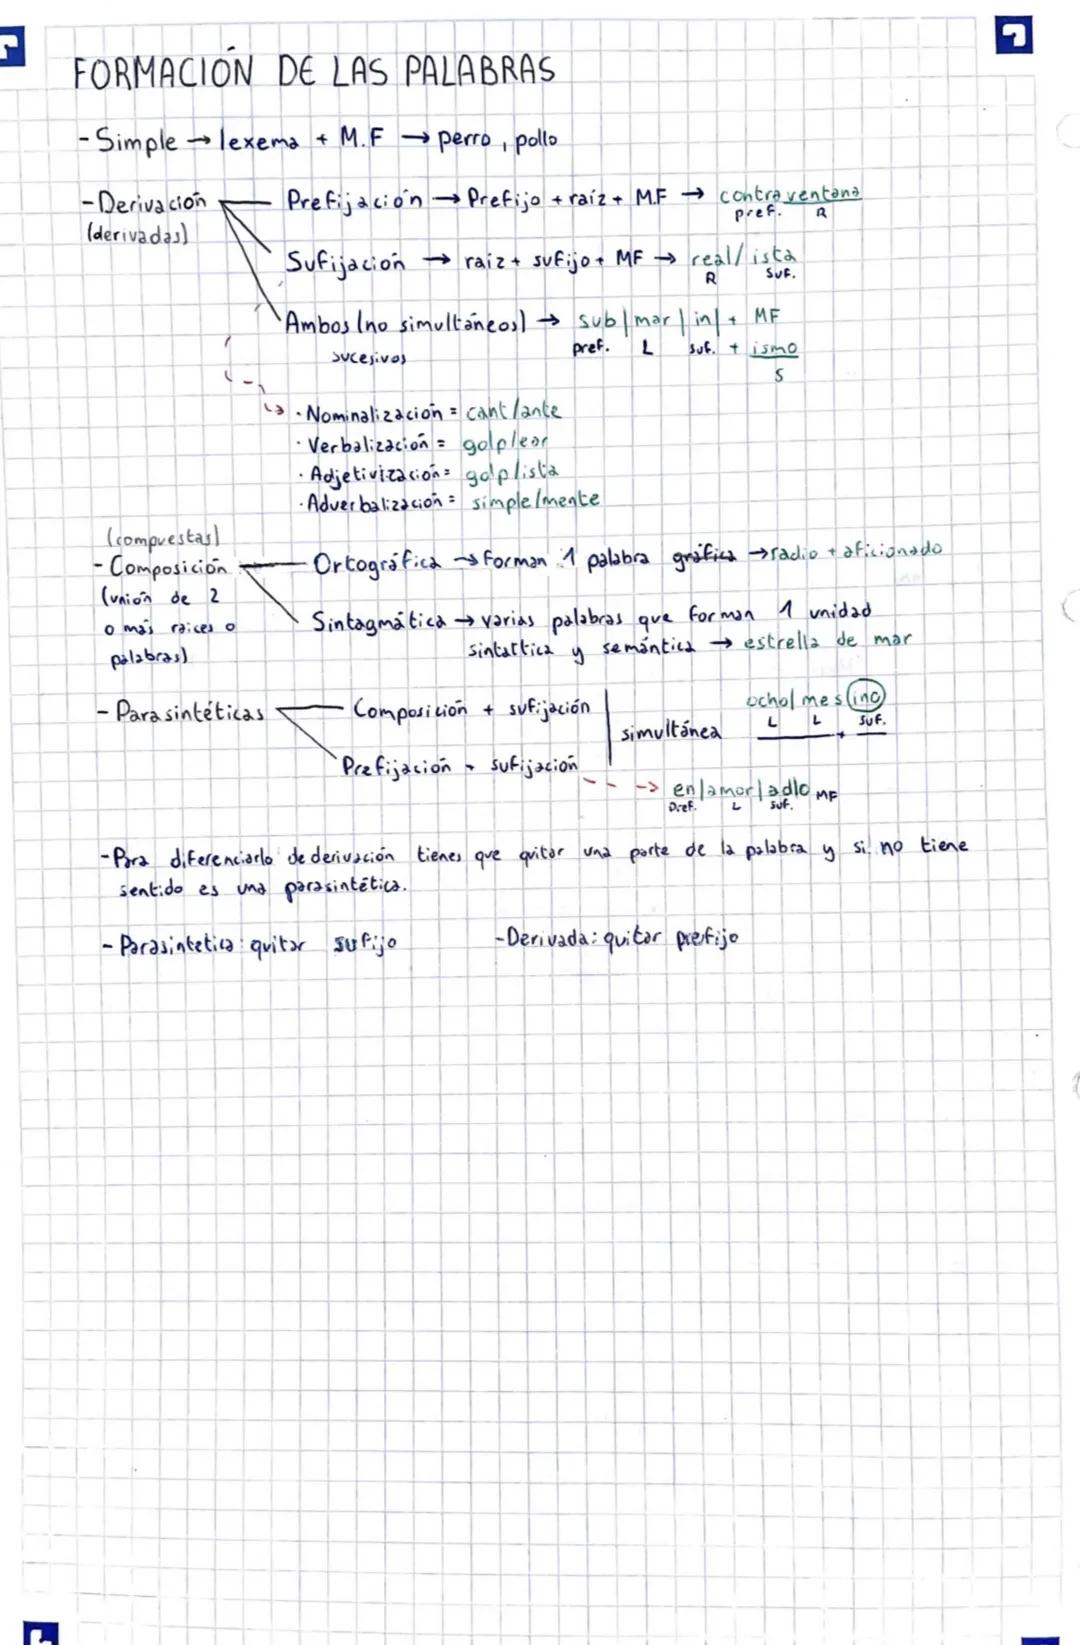 FORMACIÓN DE LAS PALABRAS
- Simple → lexema + M.F → perro, pollo
- Derivación Prefijación → Prefijo + raíz + M.F → contraventana
(derivadas) pref. R
Sufijación → raíz + sufijo + MF → real/ista
R SUF.
Ambos (no simultáneos) → sub|mar|in| + MF
sucesivos pref. L suf. + ismo
S
· Nominalización = cant/ante
· Verbalización = golp/ear
· Adjetivización = golp/ista
· Adverbalización = simple/mente
(compuestas)
- Composición Ortográfica → Forman 1 palabra gráfica → radio + aficionado
(unión de 2
o más raíces o Sintagmática → varias palabras que forman 1 unidad
palabras) sintáctica y semántica → estrella de mar
- Parasintéticas Composición + sufijación ocho|mes(ino)
simultánea L L SUF.
+
Prefijación + sufijación
--> en|amor|ad|o MF
Pref. L suf.
- Para diferenciarlo de derivación tienes que quitar una parte de la palabra y si no tiene
sentido es una parasintética.
- Parasintetica: quitar sufijo - Derivada: quitar prefijo